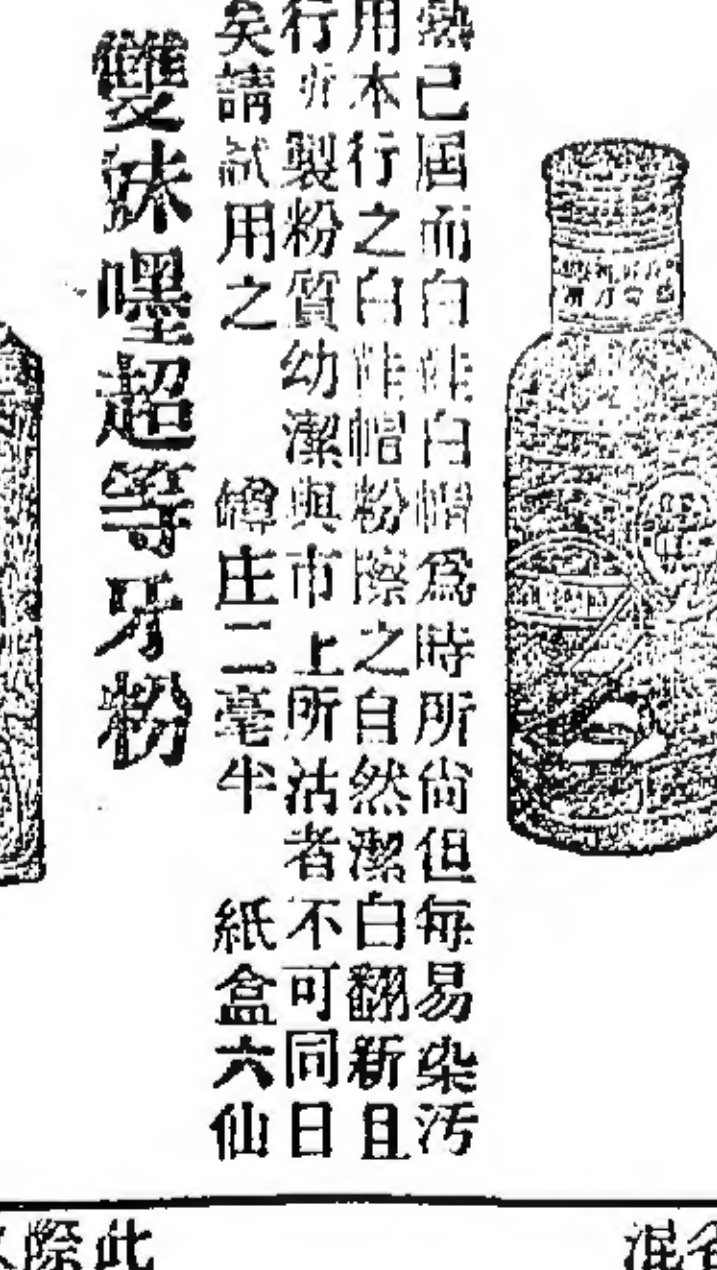 熱已屆而白鞋白帽爲時所尙但每易染汚
用本行之白鞋帽粉擦之自然潔白翻新且
行所製粉質幼潔與市上所沽者不可同日
矣請試用之 罇庄二毫半 紙盒六仙
雙妹嚜超等牙粉
混
際此